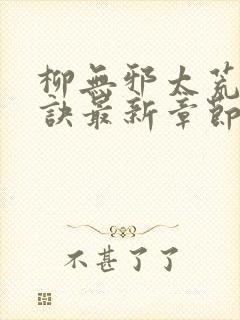 柳無邪太荒
訣最新章節
不甚了了